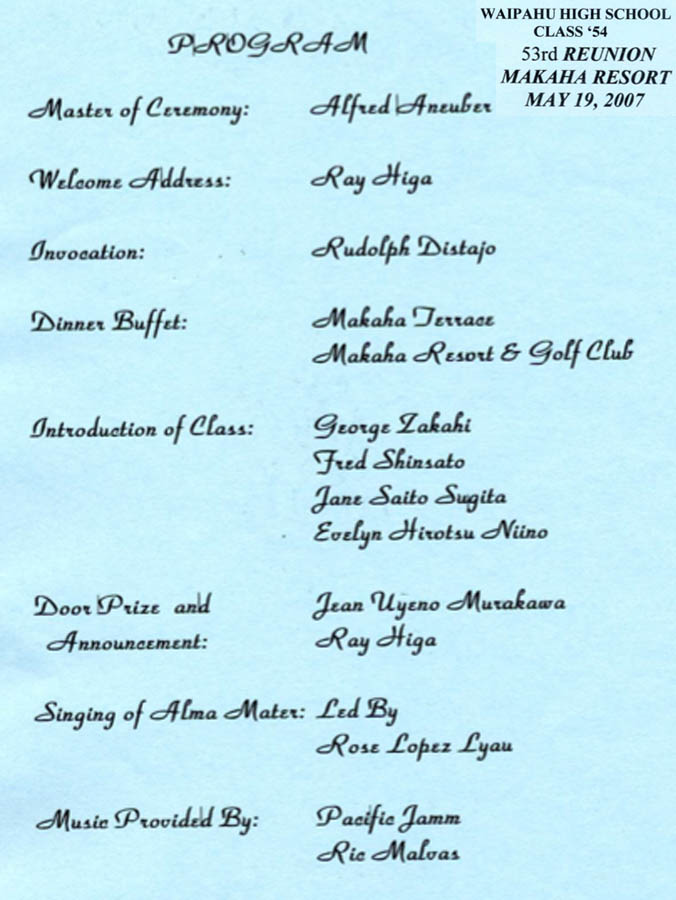 WAIPAHU HIGH SCHOOL
CLASS ‘54
53rd REUNION
MAKAHA RESORT
MAY 19, 2007
PROGRAM
Master of Ceremony: Alfred Aneuber
Welcome Address: Ray Higa
Invocation: Rudolph Distajo
Dinner Buffet: Makaha Terrace
Makaha Resort & Golf Club
Introduction of Class: George Zakahi
Fred Shinsato
Jane Saito Sugita
Evelyn Hirotsu Niino
Door Prize and Jean Uyeno Murakawa
Announcement: Ray Higa
Singing of Alma Mater: Led By
Rose Lopez Lyau
Music Provided By: Pacific Jamm
Ric Malvas